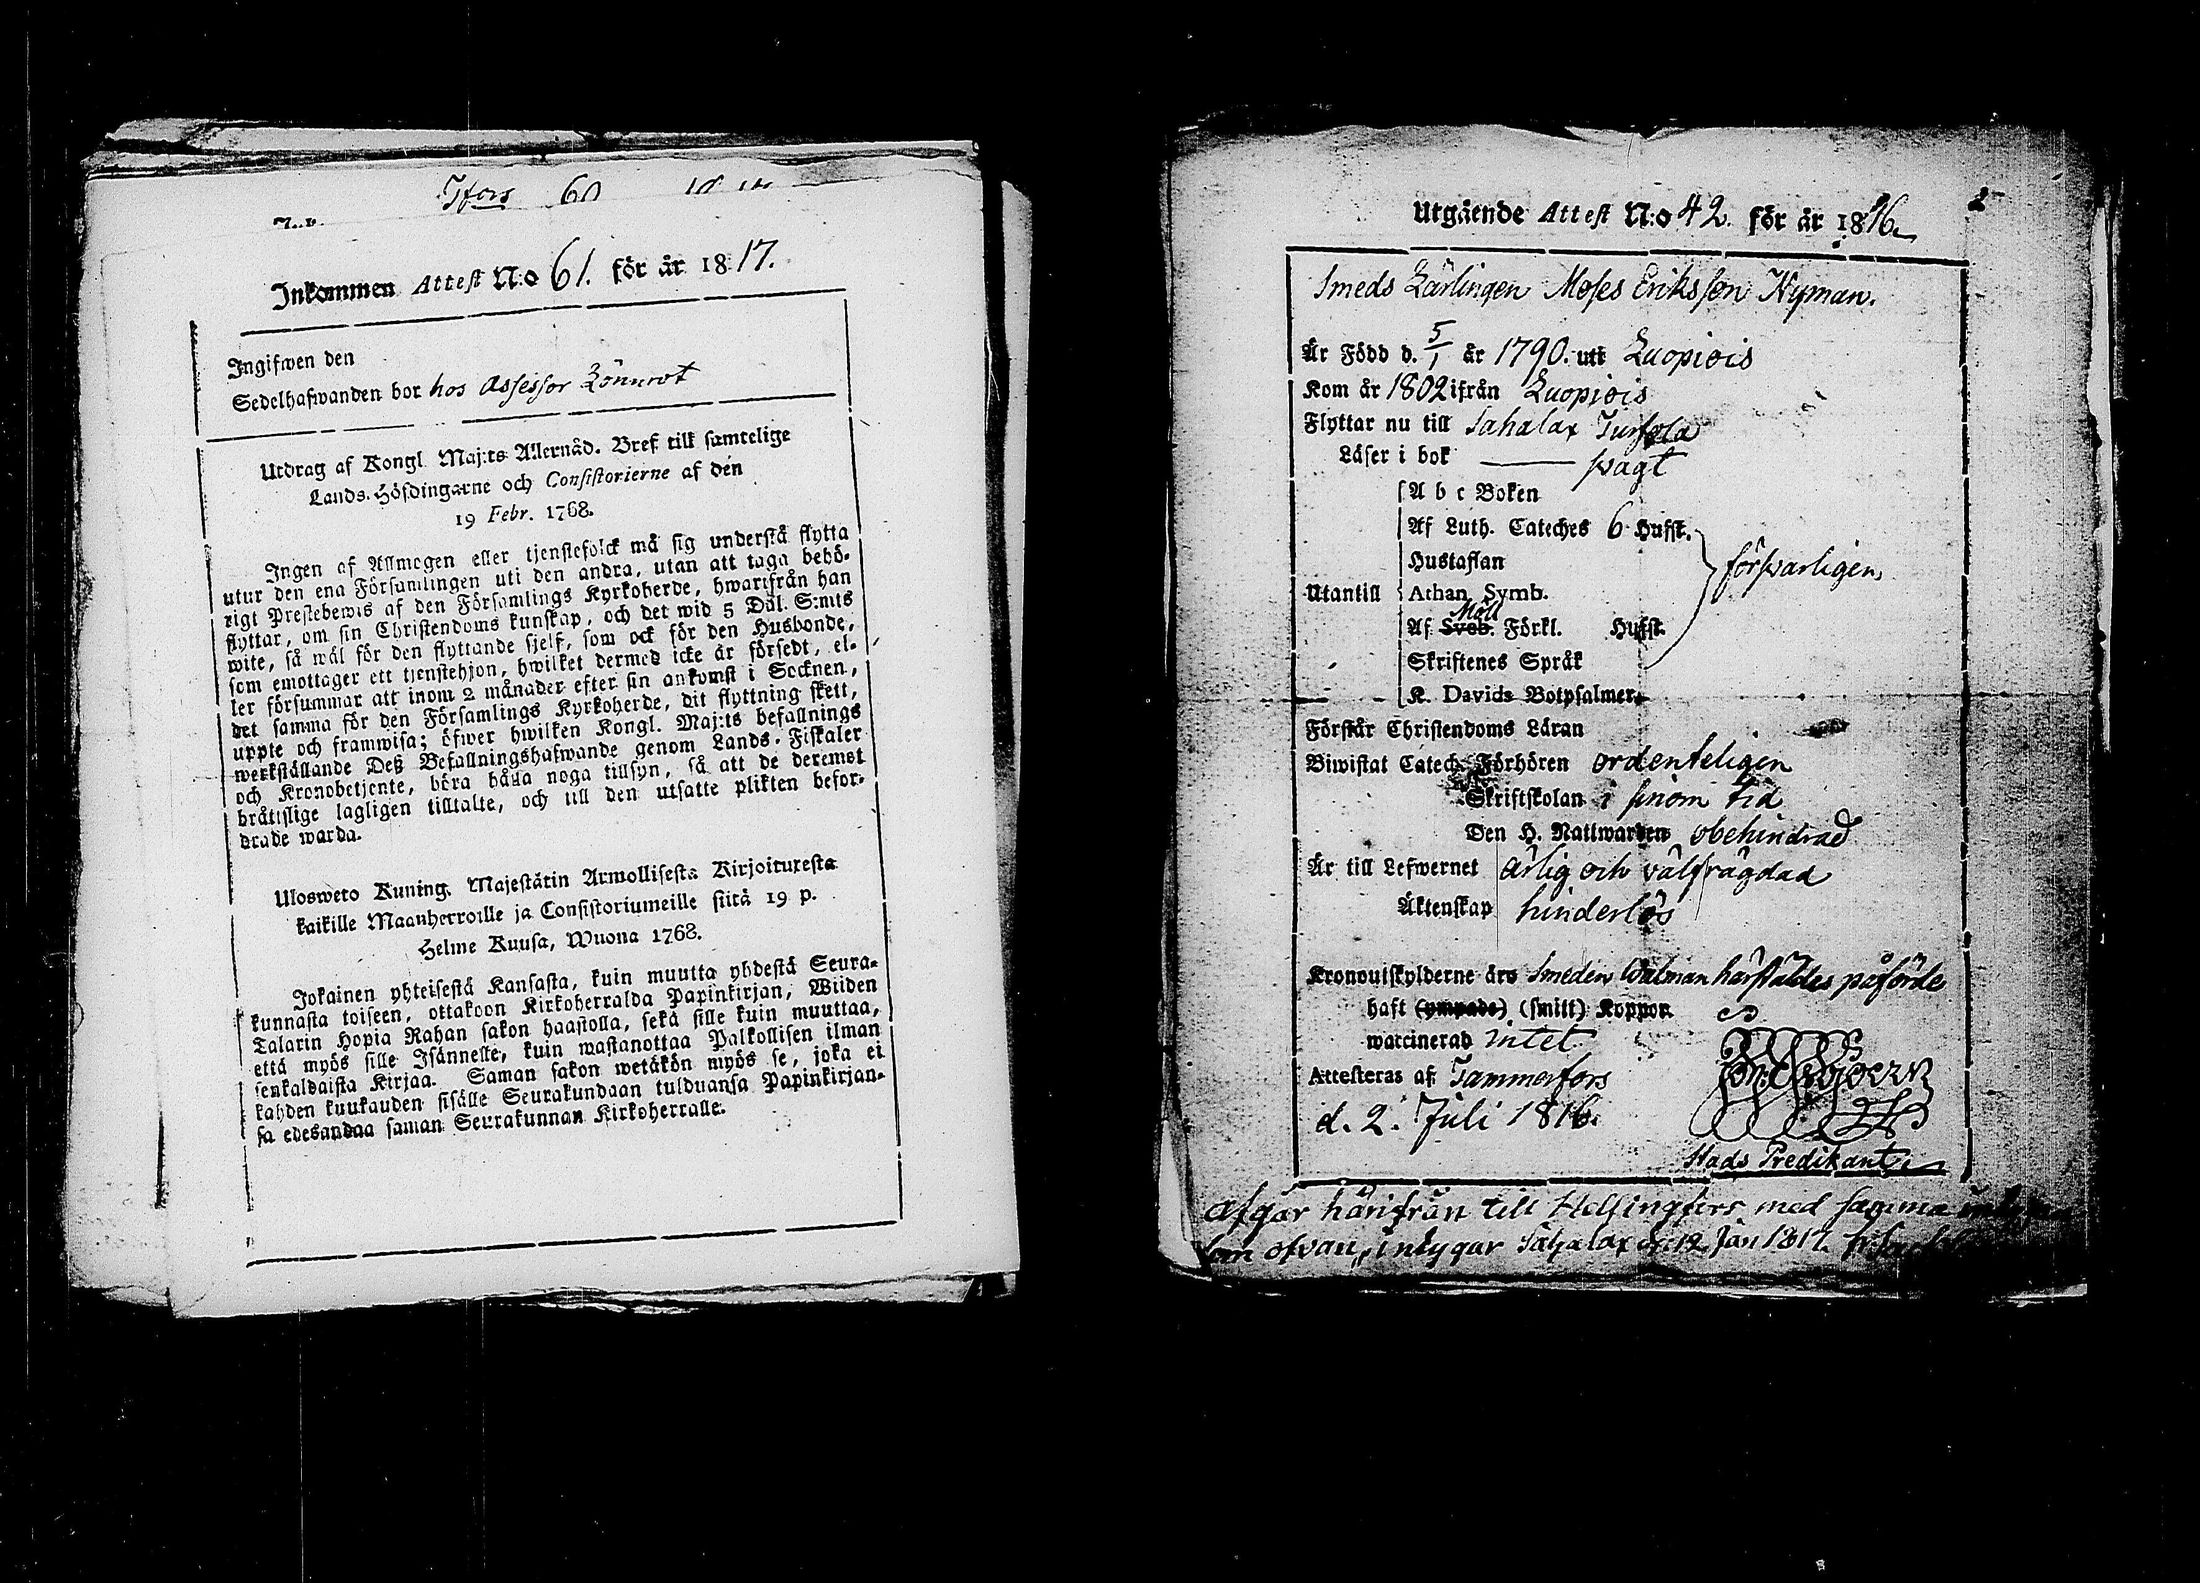 Tfors 60
Inkommen Attest N:o 61. för år 1817.
Ingifwen den
Sedelhafwanden bor hos Assessor Lönnrot
Utdrag af Kongl. Maj:ts Allernåd. Bref till samtelige
Lands-Höfdingarne och Consistorierne af den
19 Febr. 1768.
Ingen af Allmogen eller tjenstefolck må sig understå flytta
utur den ena Församlingen uti den andra, utan att taga behö-
rigt Prestebewis af den Församlings Kyrkoherde, hwarifrån han
flyttar, om sin Christendoms kunskap, och det wid 5 Dal. S:mts
wite, så wäl för den flyttande sjelf, som ock för den Husbonde,
som emottager ett tjenstehjon, hwilket dermed icke är försedt, el-
ler försummar att inom 2 månader efter sin ankomst i Socknen,
det samma för den Församlings Kyrkoherde, dit flyttning skett,
uppte och framwisa; öfwer hwilken Kongl. Maj:ts befallnings
werkställande Deß Befallningshafwande genom Lands-Fiskaler
och Kronobetjente, böra hålla noga tillsyn, så att de deremot
bråttslige lagligen tilltalte, och till den utsatte plikten befor-
drade warda.
Ulosweto Kuning. Majestätin Armollisesta Kirjoituxesta
kaikille Maanherroille ja Consistoriumeille siitä 19 p.
Helme Kuusa, Wuona 1768.
Jokainen yhteisestä Kansasta, kuin muutta yhdestä Seura-
kunnasta toiseen, ottakoon Kirkoherralda Papinkirjan, Wiiden
Talarin Hopia Rahan sakon haastolla, sekä sille kuin muuttaa,
että myös sille Isännelle, kuin wastanottaa Palkollisen ilman
senkaldaista Kirjaa. Saman sakon wetäkön myös se, joka ei
kahden kuukauden sisälle Seurakundaan tulduansa Papinkirjan-
sa edesandaa saman Seurakunnan Kirkoherralle.
2
Utgående Attest N:o 42. för år 1816.
Smeds Lärlingen Moses Eriksson Nyman.
Är Född d. 5/1 år 1790. uti Luopiois
Kom år 1802 ifrån Luopiois
Flyttar nu till Sahalax Tursola
Läser i bok svagt
A b c Boken
Af Luth. Cateches 6 Hufst.
Hustaflan
försvarligen
Utantill Athan. Symb.
Möll
Af Sveb. Förkl. Hufst.
Skriftenes Språk
K. Davids Botpsalmer.
Förstår Christendoms Läran
Biwistat Catech. Förhören ordenteligen
Skriftskolan i sinom tid
Den H. Nattwarden obehindrad
Är till Lefwernet ärlig och välfrägdad
Äktenskap hinderlös
Kronoutskylderne äro Smeden Walman härstädes påförde
haft (ympade) (smitt) Koppor.
waccinerad intet
Attesteras af Tammerfors
d. 2. Juli 1816.
Stads Predikant.
Afgår härifrån till Helsingfors med samma
som ofvan, intygar Sahalax d. 12 Jan 1817.